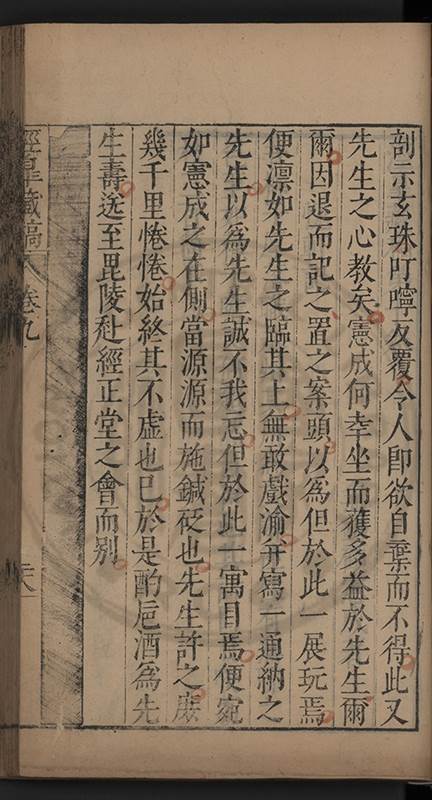 剖示玄珠叮嚀反覆令人卽欲自棄而不得此又
先生之心教矣憲成何幸坐而獲多益於先生爾
爾因退而記之置之案頭以爲但於此一展玩焉
便凛如先生之臨其上無敢戲渝并寫一通納之
先生以爲先生誠不我忘但於此一寓目焉便宛
如憲成之在側當源源而施鍼砭也先生許之嚴
幾千里惓惓始終其不虛也已於是酌巵酒爲先
生壽送至毘陵赴經正堂之會而别
涇臯藏稿 卷九